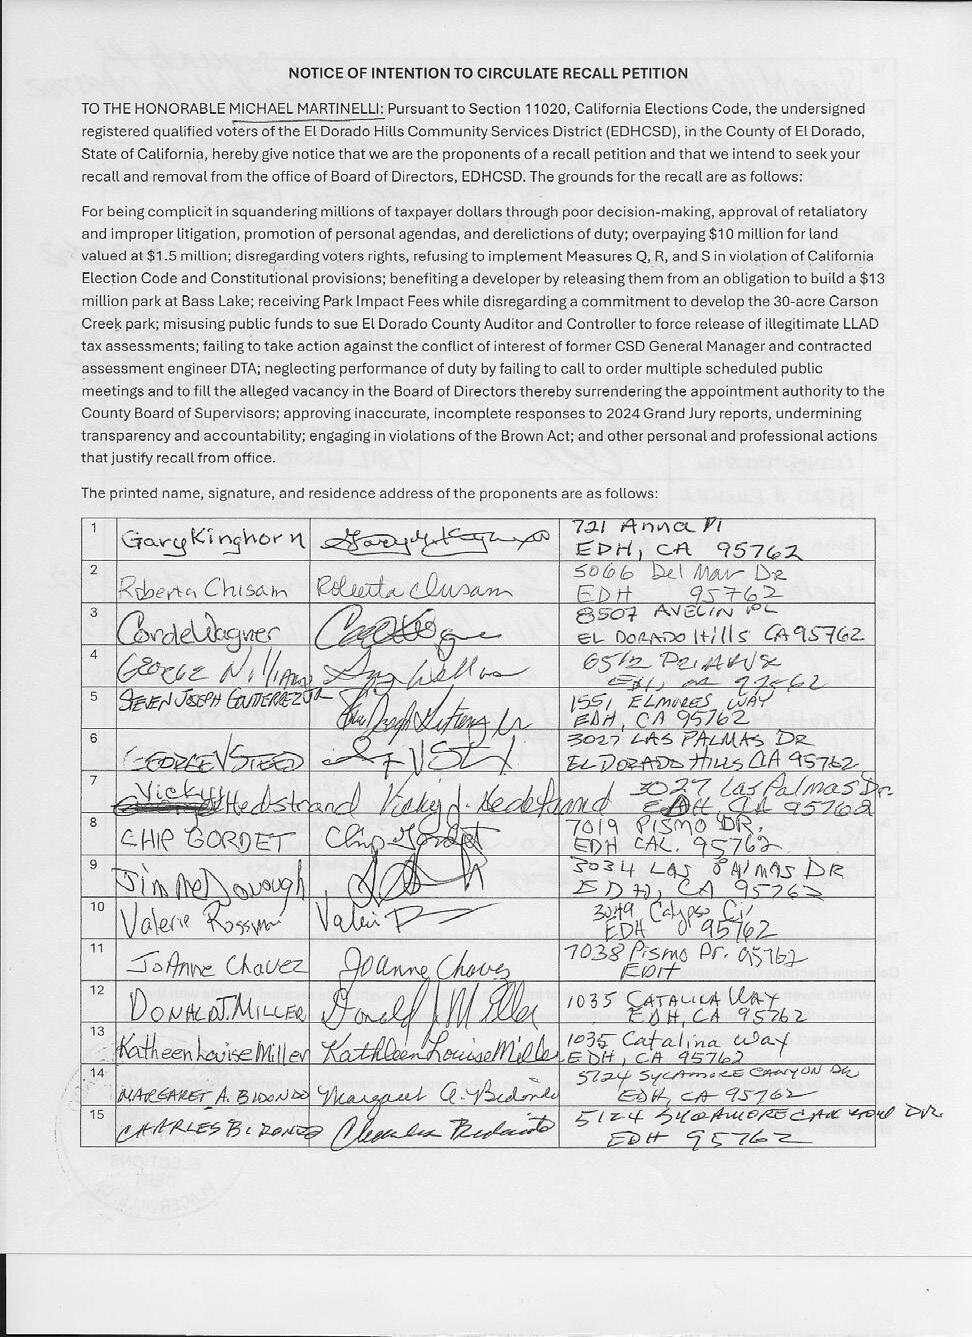 NOTICE OF INTENTION TO CIRCULATE RECALL PETITION
TO THE HONORABLE MICHAEL MARTINELLI: Pursuant to Section 11020, California Elections Code, the undersigned
registered qualified voters of the El Dorado Hills Community Services District (EDHCSD), in the County of El Dorado,
State of California, hereby give notice that we are the proponents of a recall petition and that we intend to seek your
recall and removal from the office of Board of Directors, EDHCSD. The grounds for the recall are as follows:
For being complicit in squandering millions of taxpayer dollars through poor decision-making, approval of retaliatory
and improper litigation, promotion of personal agendas, and derelictions of duty; overpaying $10 million for land
valued at $1.5 million; disregarding voters rights, refusing to implement Measures Q, R, and S in violation of California
Election Code and Constitutional provisions; benefiting a developer by releasing them from an obligation to build a $13
million park at Bass Lake; receiving Park Impact Fees while disregarding a commitment to develop the 30-acre Carson
Creek park; misusing public funds to sue El Dorado County Auditor and Controller to force release of illegitimate LLAD
tax assessments; failing to take action against the conflict of interest of former CSD General Manager and contracted
assessment engineer DTA; neglecting performance of duty by failing to call to order multiple scheduled public
meetings and to fill the alleged vacancy in the Board of Directors thereby surrendering the appointment authority to the
County Board of Supervisors; approving inaccurate, incomplete responses to 2024 Grand Jury reports, undermining
transparency and accountability; engaging in violations of the Brown Act; and other personal and professional actions
that justify recall from office.
The printed name, signature, and residence address of the proponents are as follows:
1 Gary Kinghorn 721 Anna Pl
EDH, CA 95762
2 Roberta Chisam Roberta Chisam 5066 Del Mar Dr
EDH 95762
3 Corde Wagner 8507 AVELIN PL
EL DORADO Hills CA 95762
4 GEORGE
5 STEVEN JOSEPH GUTIERREZ JR 1551 ELMORES WAY
EDH, CA 95762
6 GEORGE V STEED 3027 LAS PALMAS DR
EL DORADO HILLS CA 95762
7 Vicky Hedstrand Vicky J. Hedstrand 3027 Las Palmas Dr.
EDH, CA 95762
8 CHIP GORDET Chip Gordet 7019 PISMO DR.
EDH CAL. 95762
9 Jim McDonough 3034 LAS PALMAS DR
EDH, CA 95762
10 Valerie 3049 Calypso Cir
EDH 95762
11 JoAnne Chavez JoAnne Chavez 7038 Pismo Dr. 95762
EDH
12 DONALD J. MILLER Donald J. Miller 1035 CATALINA WAY
EDH, CA 95762
13 Kathleen Louise Miller Kathleen Louise Miller 1035 Catalina Way
EDH, CA 95762
14 MARGARET A. BIDONDO Margaret A. Bidondo 5124 SYCAMORE CANYON DR
EDH, CA 95762
15 CHARLES BIDONDO Charles Bidondo 5124 SYCAMORE CANYON DR
EDH 95762